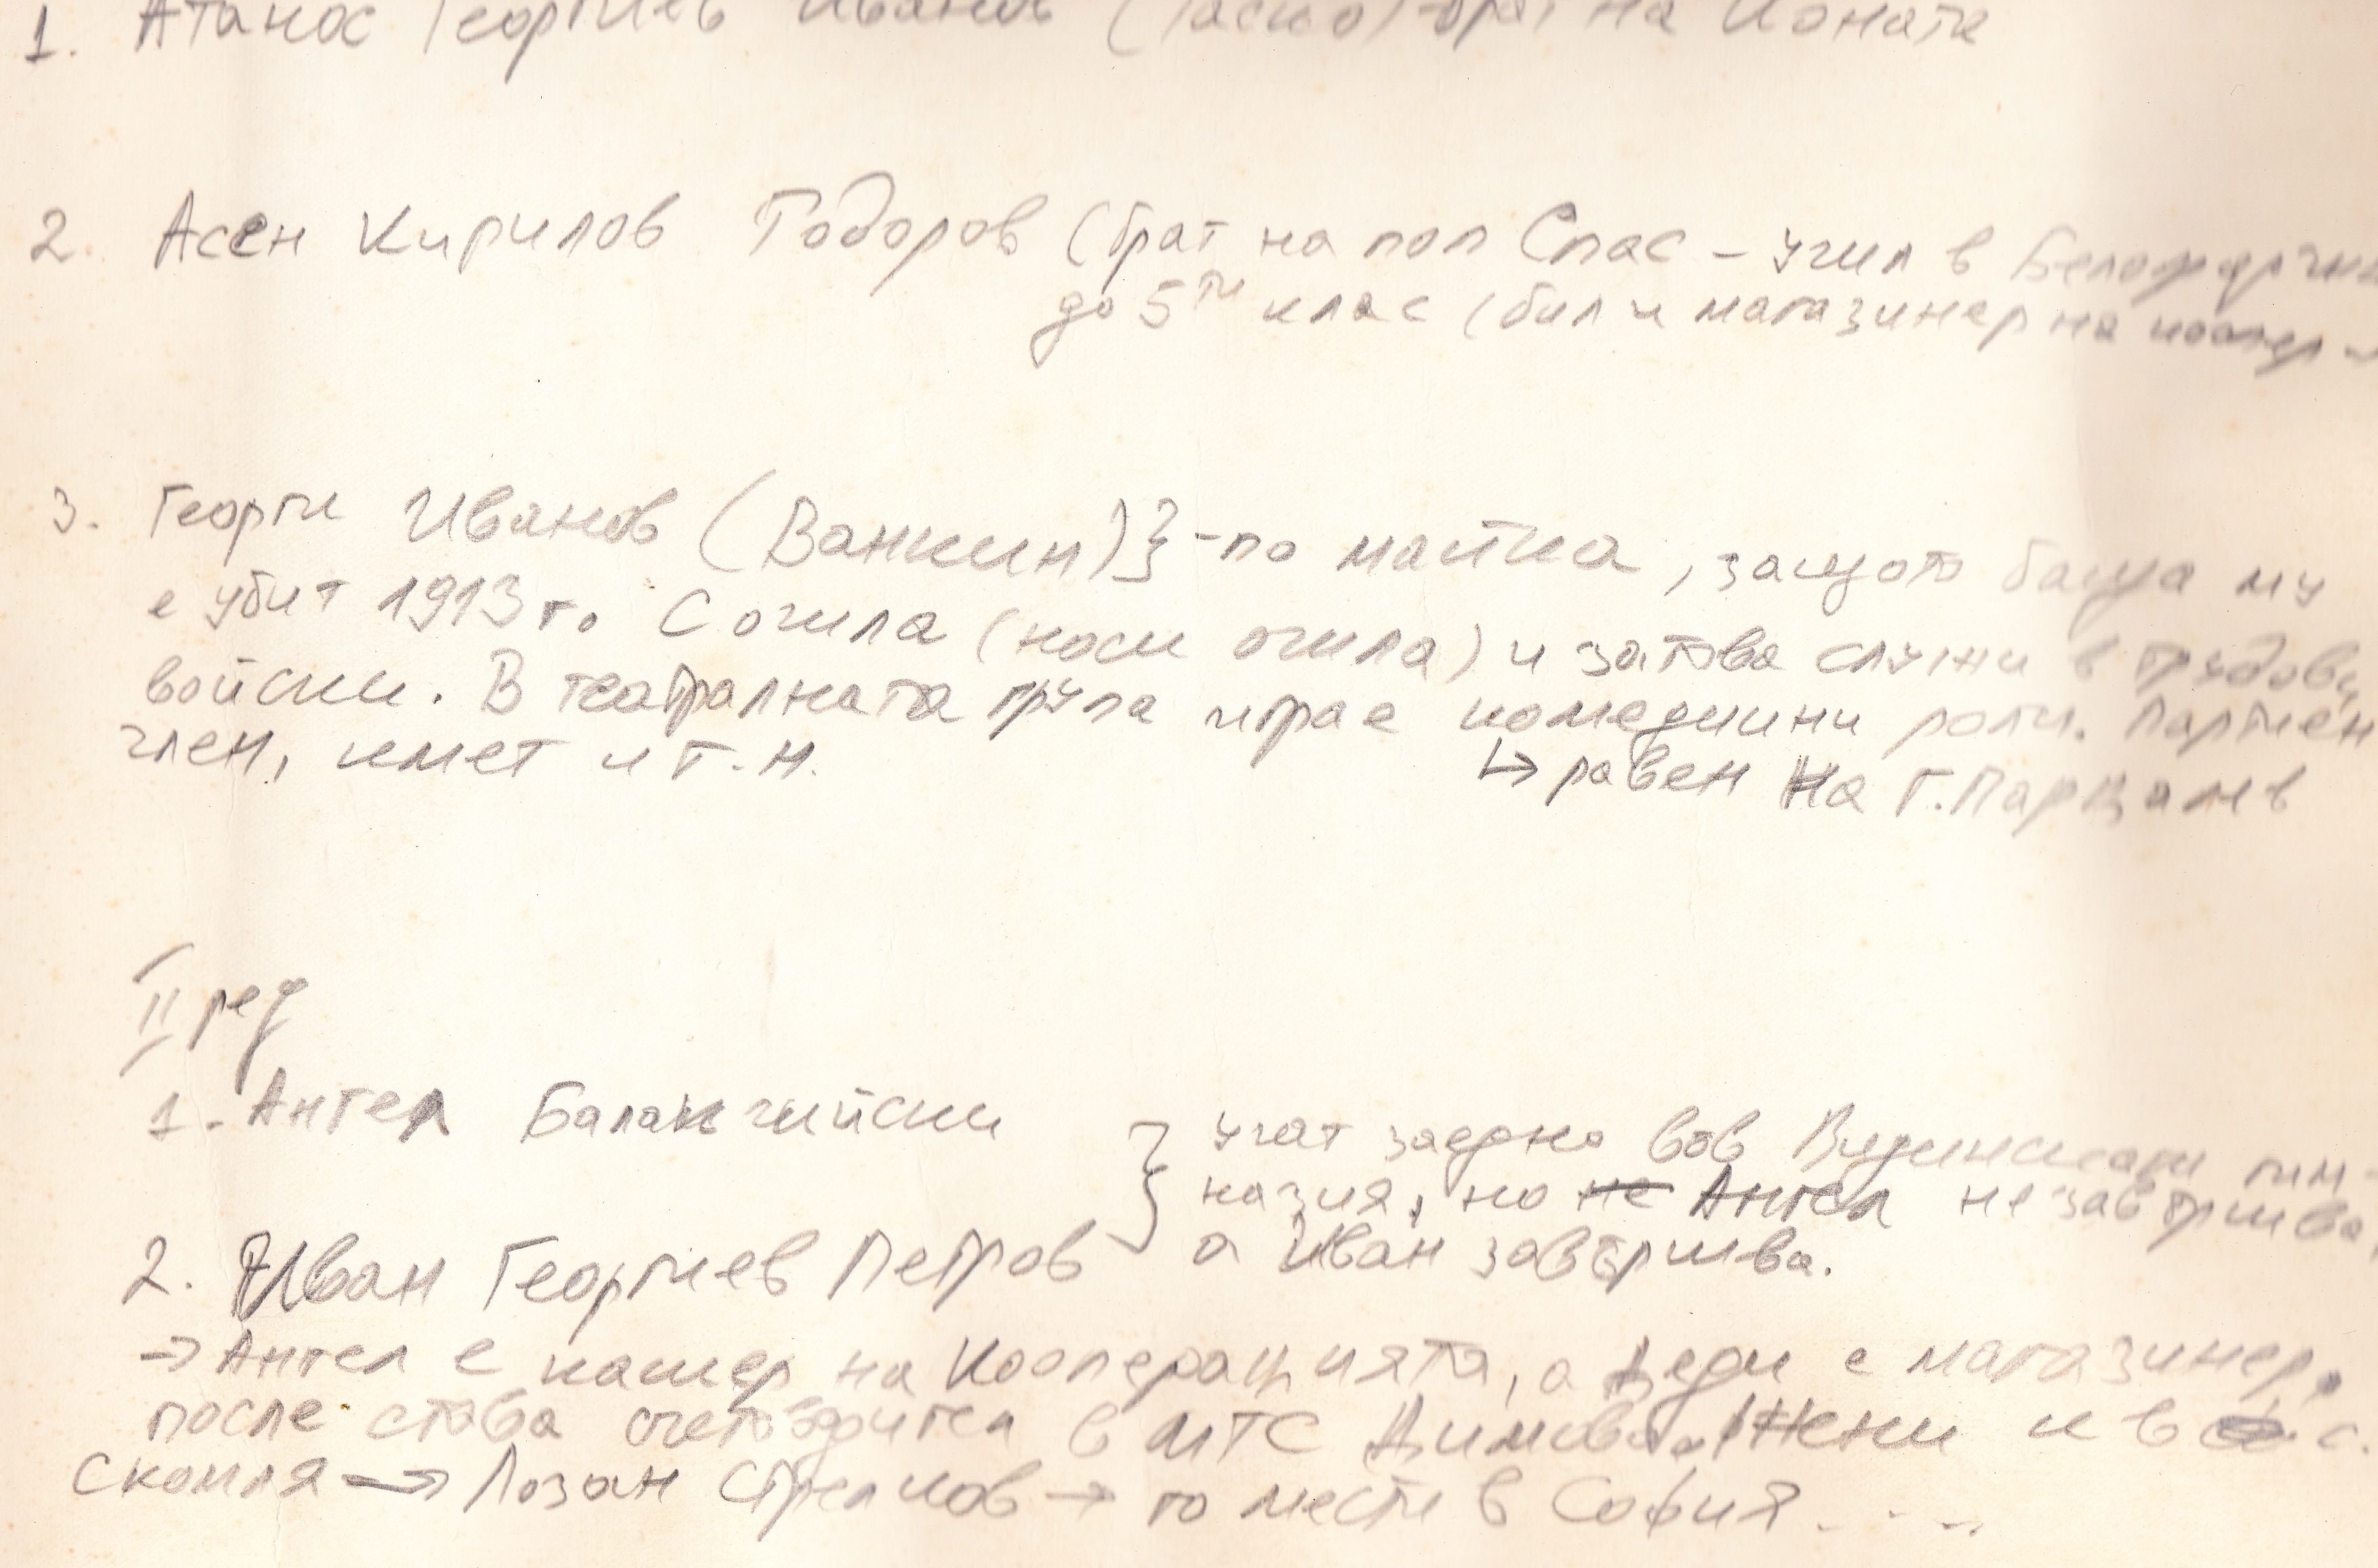 1. Атанас Георгиев Иванов (Таско) - брат на Коната
2. Асен Кирилов Тодоров (брат на поп Спас - учил в
до 5ти клас (бил и магазинер на коопер-
3. Георги Иванов (Ванкин)} - по майка, защото баща му
е убит 1913 г. С очила (носи очила) и затова служи в трудови
войски. В театралната група играе комедийни роли. Партиен
член, кмет и т.н.
↳ равен на Г. Парцалев
II ред
1. Ангел Баланчийски
2. Иван Георгиев Петров
} учат заедно във Видинската гим-
назия, но не Ангел не завършва,
а Иван завършва.
→ Ангел е касиер на Кооперацията, а е магазинер,
после става счетоводител в МТС Димово и в с.
Скомля → Лозан Стрелков → го мести в София....